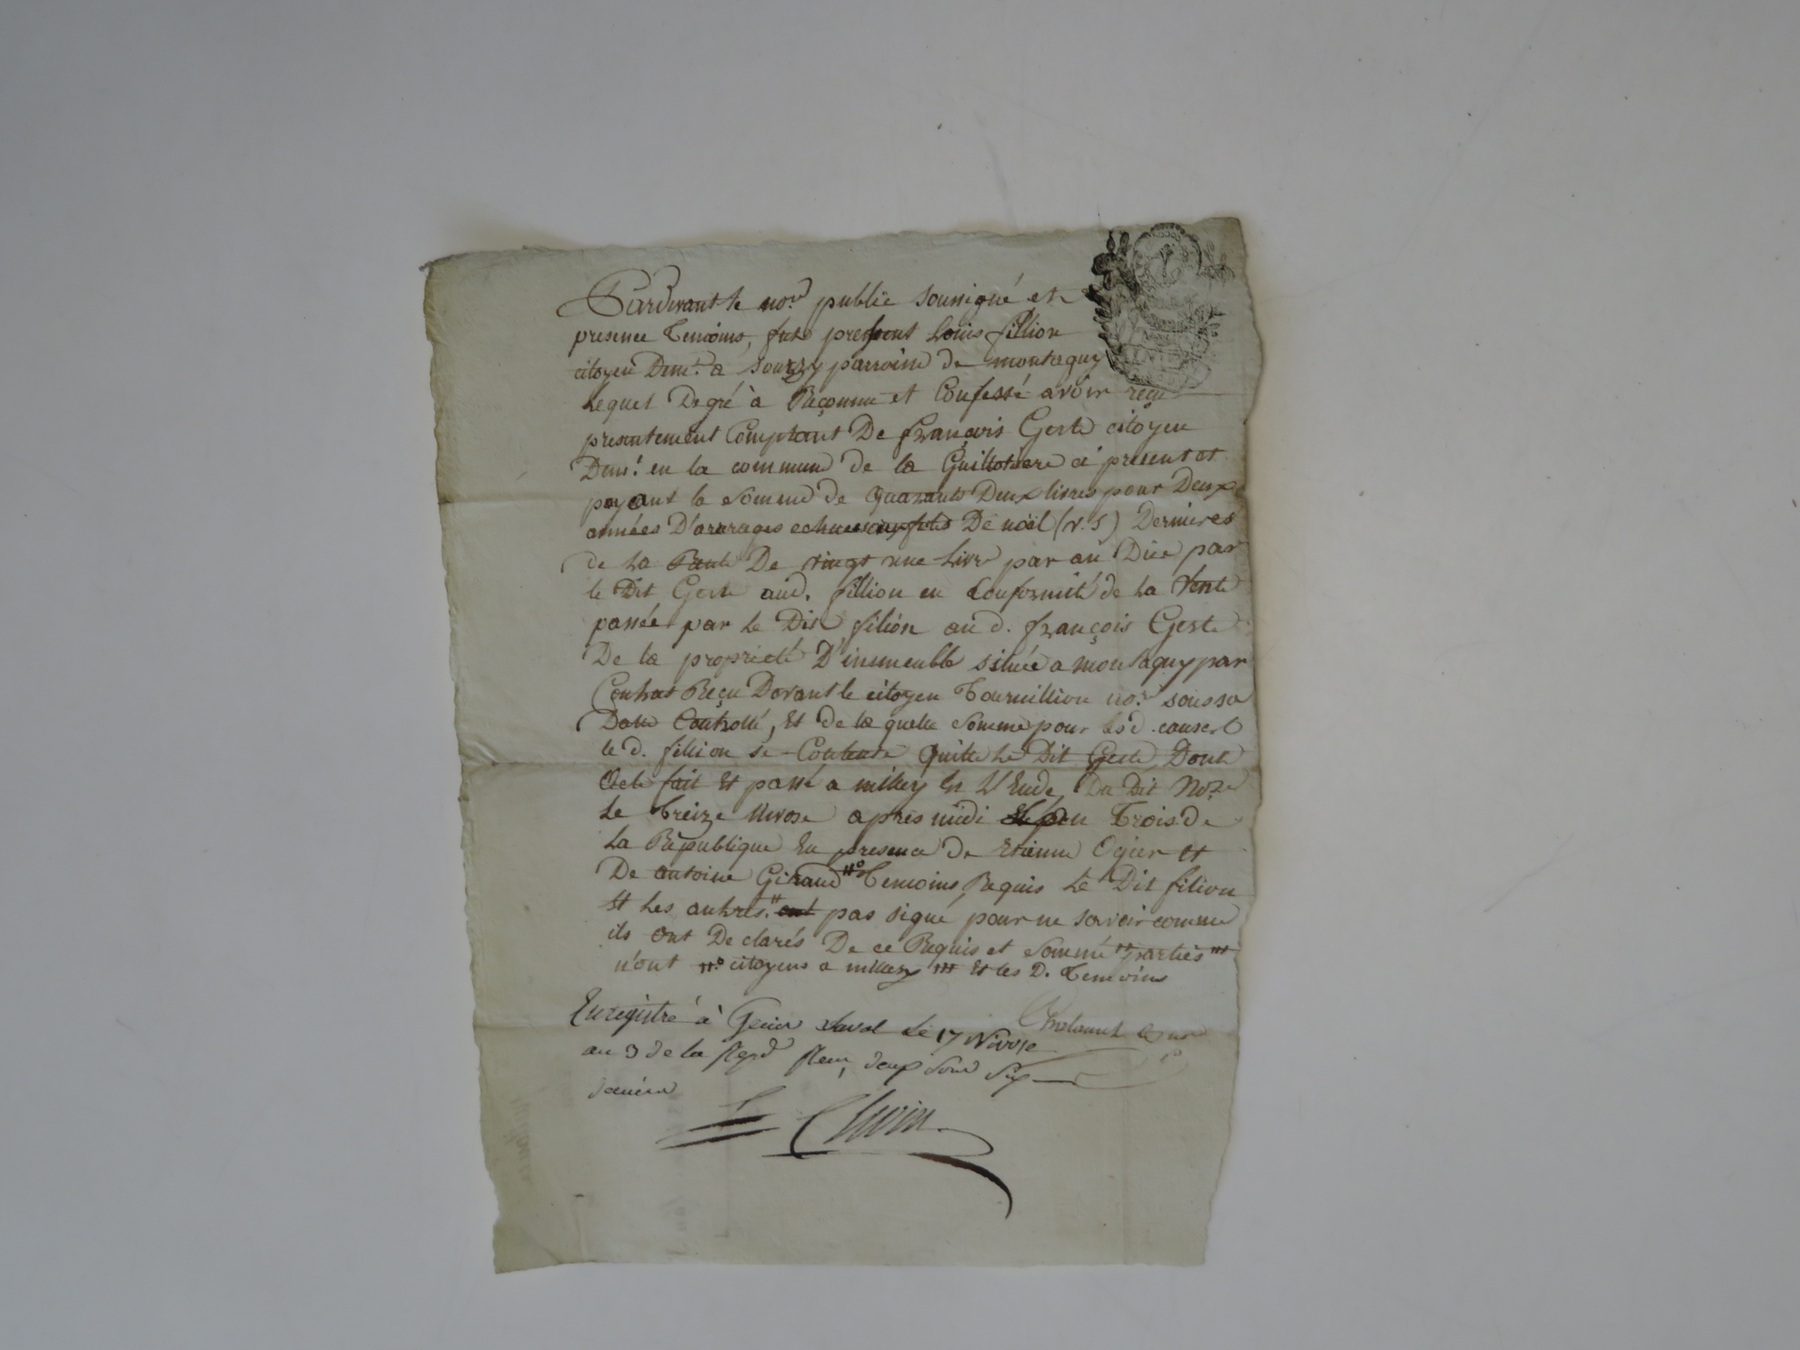 Pardevant le nore public soussigné et
presence Temoins, fut present Louis fillion
citoyen Demt. a Sourzy parroisse de montagny
Lequel De gré à Reconnu et Confessé avoir reçu
presentement Comptant De françois Geste citoyen
Demt. en la commune de la Guillotiere ci present et
payant la somme de quarante Deux livres pour Deux
années D'ararages echues De noël (v. s) Dernieres
de La Rante De vingt une Livre par an Düe par
le Dit Geste aud. fillion en Conformité de La Vente
passée par Le Dit filion au d. françois Geste
De la propriété D'immeuble située a montagny par
Contrat Reçu Devant le citoyen Tournillion nore sous sa
Datte Controllé, Et de la quelle somme pour
le d. fillion se Contente quitte Le Dit Geste Dont
Acte fait Et passé a millery En L'Etude Du Dit Nore
Le Treize Nivose après midi Trois de
La République En presence de Etienne Ogier et
De antoine Giraud #° Temoins Requis Le Dit filion
Et Les autres # pas signé pour ne savoir comme
ils ont Declarés De ce Requis et sommé ## parties ###
n'ont #° citoyens a millery ### Et les D. Temoins
Enregistré à Genis Laval Le 17 Nivose
an 3 de la Repd Reçu deux sous six
deniers